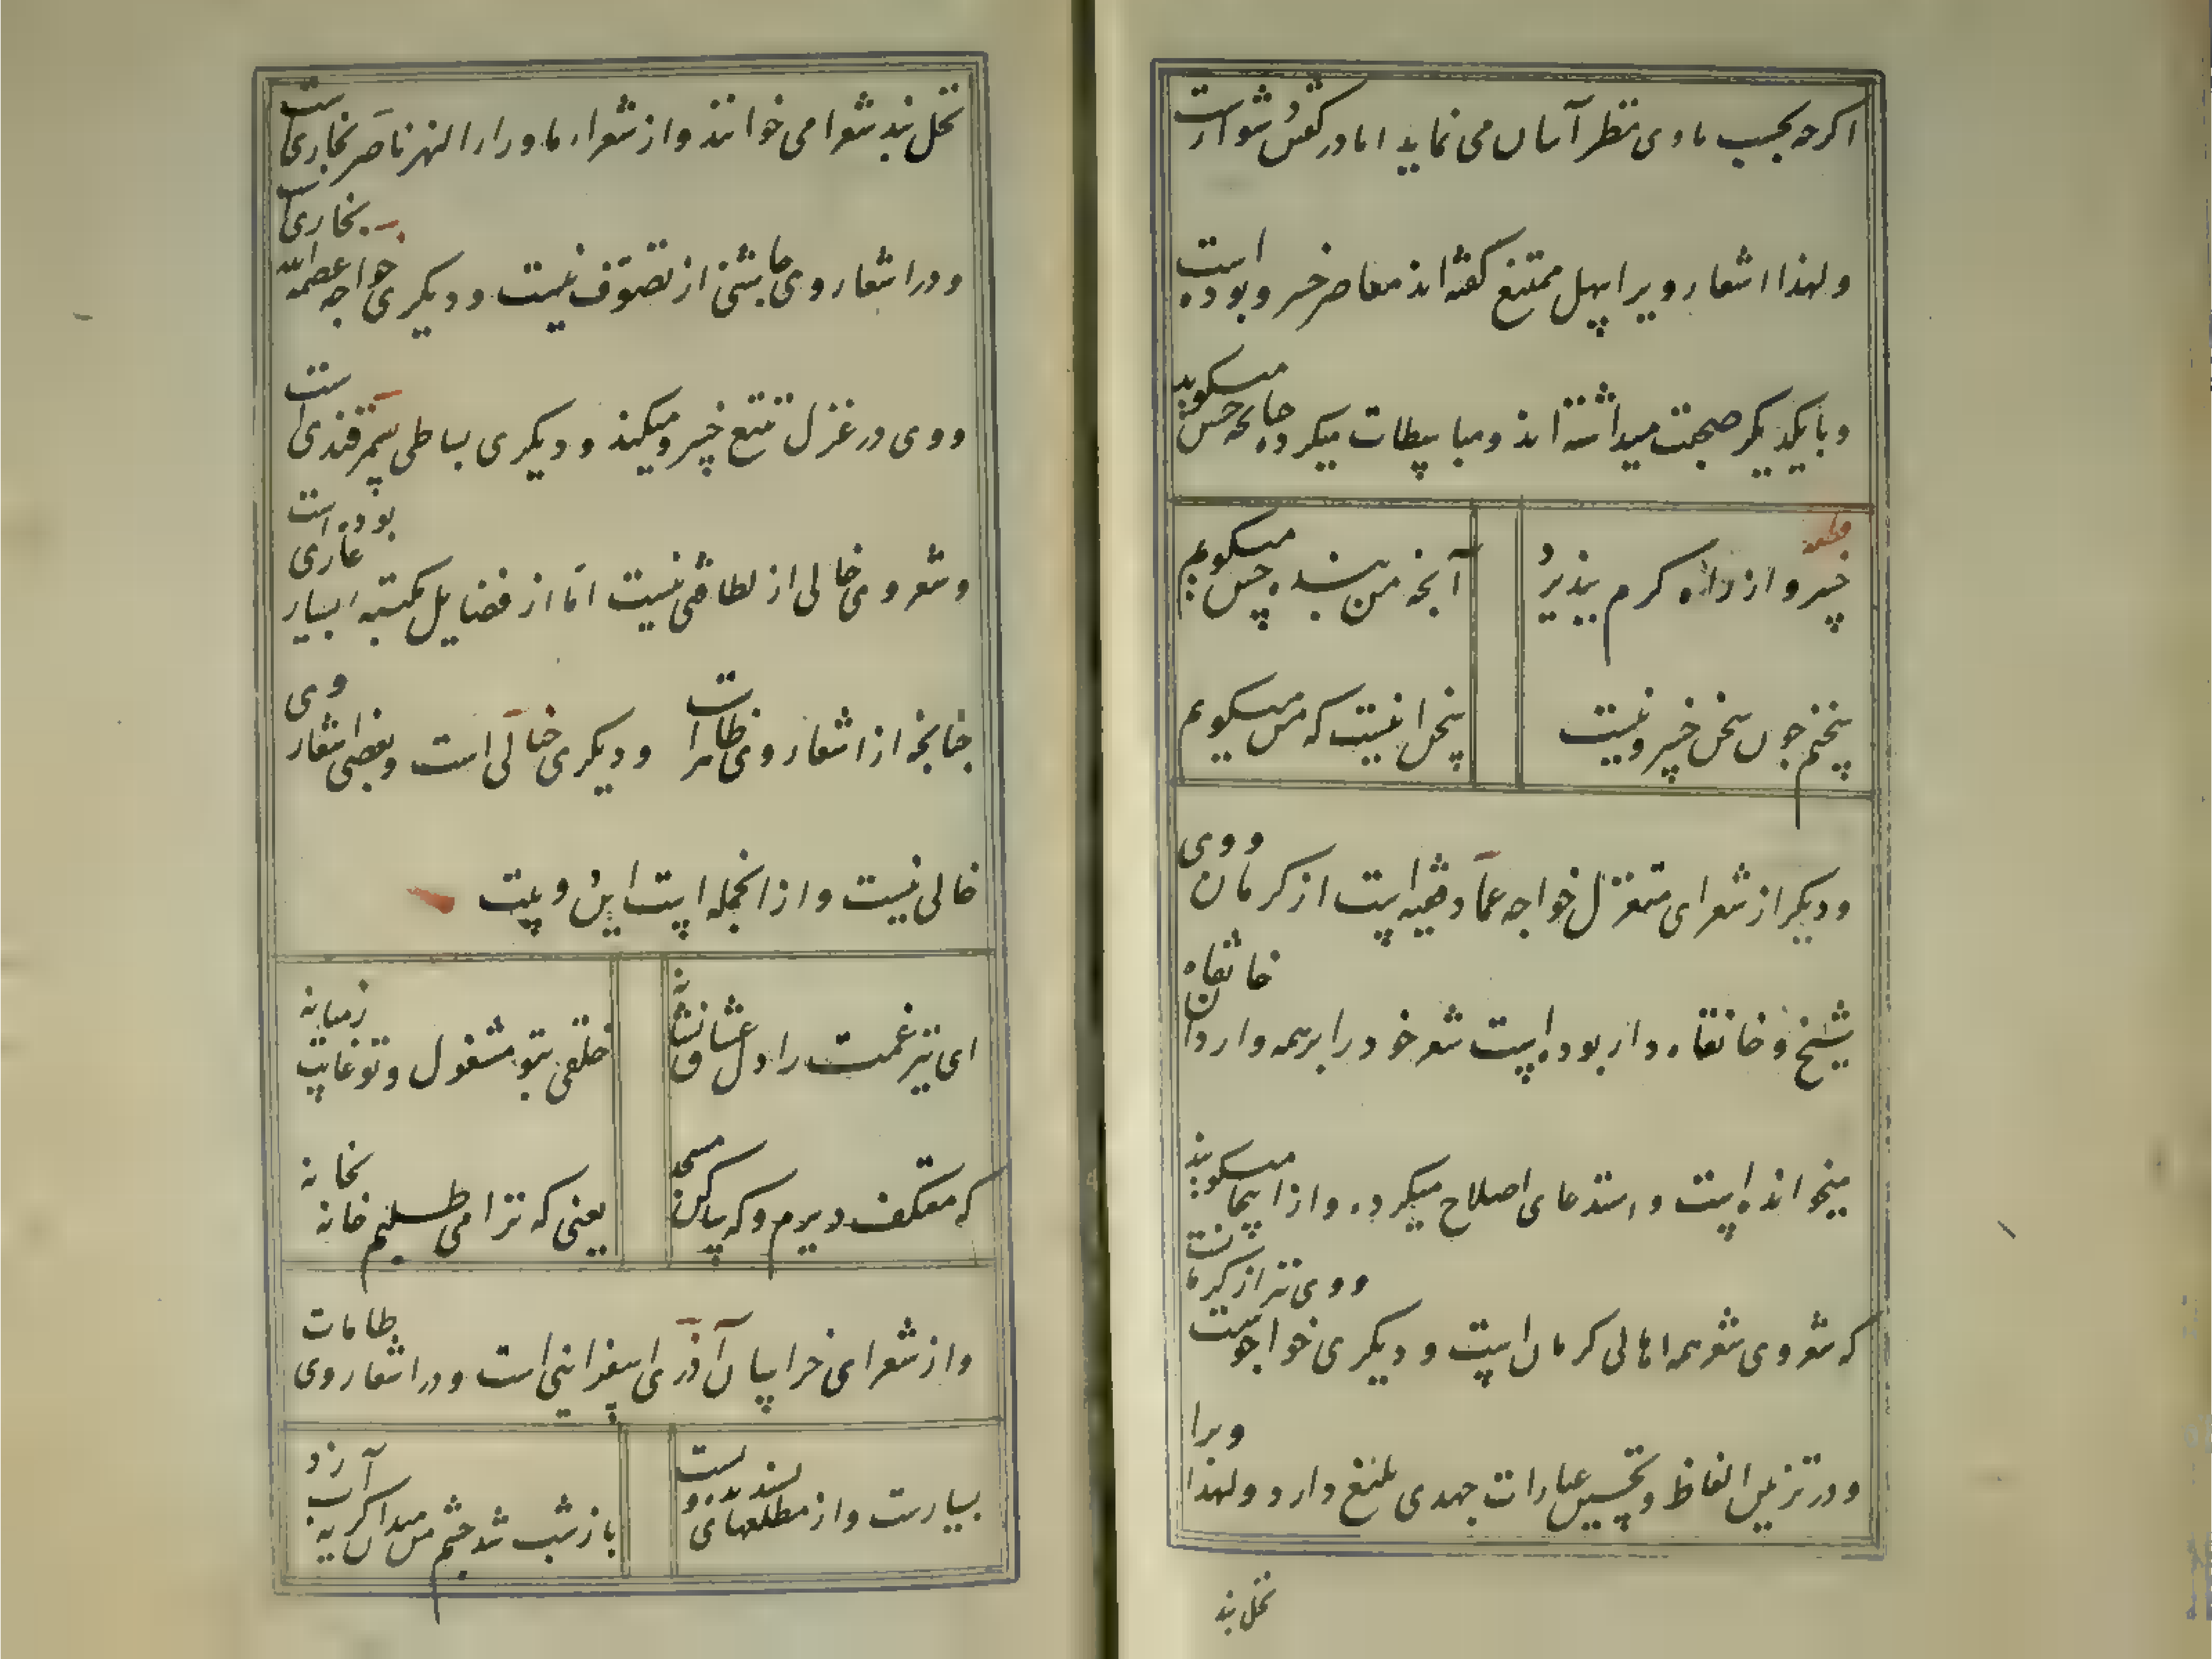 اکرچه بحسب بادی نظر آسان می نماید اما در کفتن دشوارست
ولهذا اشعار ویرا سهل ممتنع کفته اند معاصر خسرو بوده است
وبایکدیکر صحبت میداشته اند ومباسطات میکرده چنانچه حسن میکوید
قطعه
خسرو از راه کرم بپذیرد
آنچه من بنده حسن میکویم
سخنم چون سخن خسرو نیست
سخن اینست که من میکویم
ودیکر از شعرای متغزل خواجه عماد فقیه است از کرمان ووی
شیخ و خانقاه دار بوده است شعر خود را بر همه واردان خانقاه
میخوانده است و استدعای اصلاح میکرده و از اینجا میکویند
که شعر وی شعر همه اهالی کرمان است و دیکری خواجوست ووی نیز از کرمانست
ودر تزیین الفاظ وتحسین عبارات جهدی بلیغ دارد ولهذا ویرا
نخل بند
نخل بند شعرا می خوانند واز شعراء ماوراء النهر ناصر بخاریست
ودر اشعار وی چاشنی از تصوف نیست ودیکری خواجه عصمة الله بخاریست
ووی در غزل تتبع خسرو میکند ودیکری بساطی سمرقندی است
وشعر وی خالی از لطافتی نیست اما از فضایل مکتسبه بسیار عاری بوده است
چنانچه از اشعار وی ظاهر است ودیکری خیالی است وبعضی اشعار وی
خالی نیست واز انجمله است این دو بیت
ای تیر غمت را دل عشاق نشانه
خلقی بتو مشغول وتو غایب زمیانه
که معتکف دیرم وکه ساکن مسجد
یعنی که ترا می طلبم خانه بخانه
واز شعرای خراسان آذری اسفراینی است ودر اشعار وی طامات
بسیارست واز مطلعهای پسندیده وست
باز شب شد چشم من میدان کریه آب زد